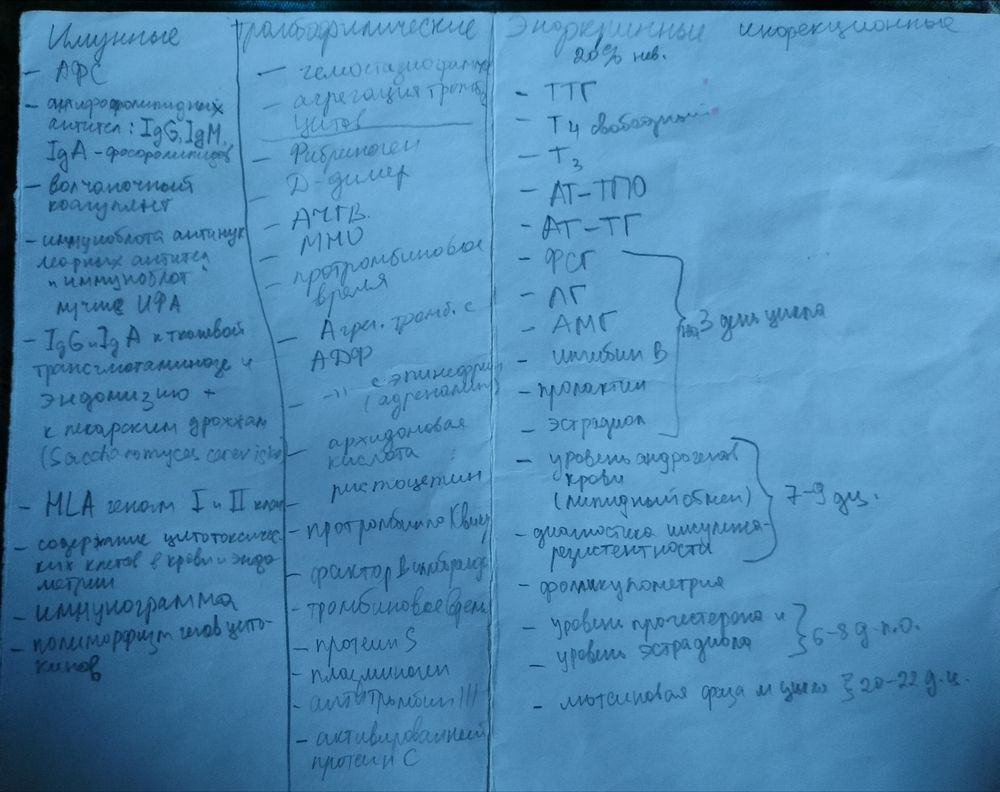 Имунные
- АФС
- антифосфолипидных
антител: IgG, IgM,
IgA - фосфолипидов
- волчаночный
коагулянт
- иммуноблота антинук
леарных антител
"иммуноблот"
лучше ИФА
- IgG и IgA к тканевой
трансглютаминазе и
эндомизию +
к пекарским дрожжам
(Saccharomyces cerevisiae)
- MLA генот I и II клас
- содержание цитотоксичес-
ких клеток в крови и эндо
метрии
- иммунограмма
- полиморфизм генов цито-
кинов
Тромбофилические
- гемостазиограмма
- агрегация тромбо
цитов
- Фибриноген
- Д-димер
- АЧТВ.
- МНО
- протромбиновое
время
- Агрег. тромб. с
АДФ
- -"- с эпинефрин
(адреналин)
архидоновая
кислота
ристоцетин
- протромбин по Квику
- фактор Виллебранда
- тромбиновое время
- протеин S
- плазминоген
- антитромбин III
- активированный
протеин С
Эндокринные инфекционные
20% нев.
- ТТГ
- Т4 свободный
- Т3
- АТ-ТПО
- АТ-ТГ
- ФСГ
- ЛГ
- АМГ
- ингибин В
- пролактин
- эстрадиол
на 3 день цикла
- уровень андрогенов
крови
(липидный обмен)
- диагностика инсулино-
резистентности
7-9 д.ц.
- фолликулометрия
- уровень прогестерона и
- уровень эстрадиола
6-8 д.п.о.
- лютеиновая фаза м цикла } 20-22 д.ц.